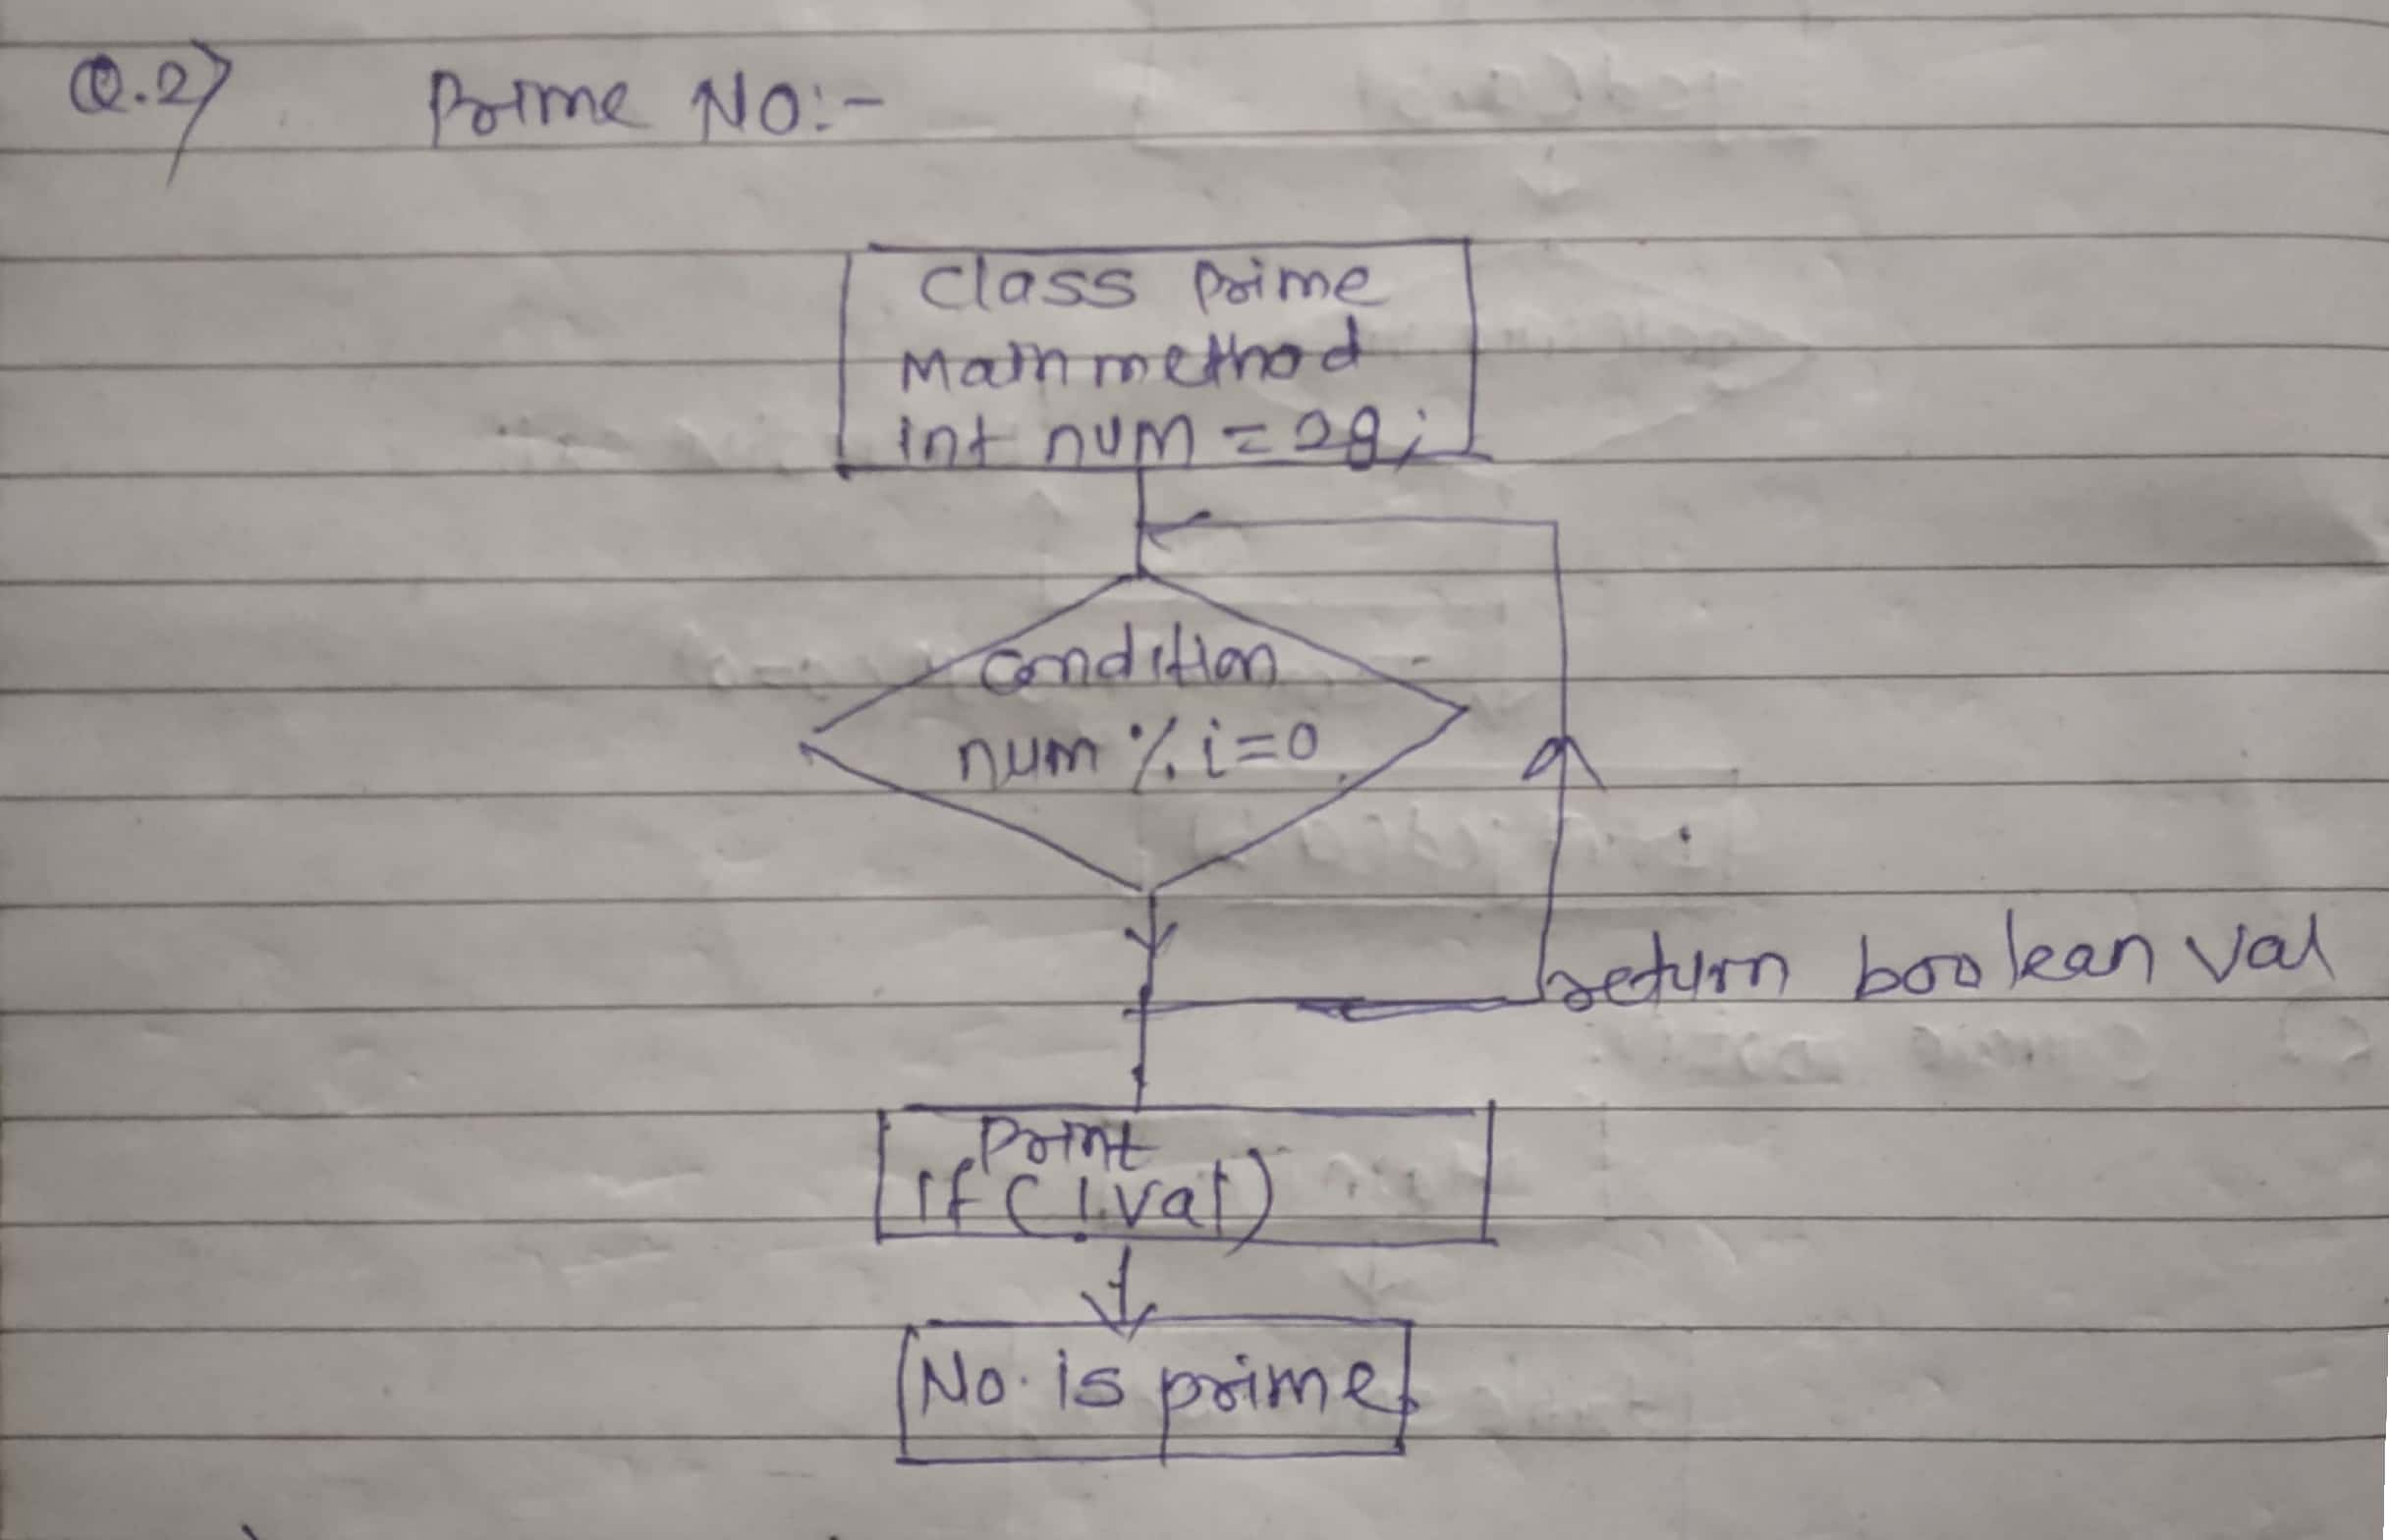 Q.2) Prime No:-
class prime
Main method
int num = 29;
condition
num % i=0
return boolean val
Print
if (!val)
No. is prime